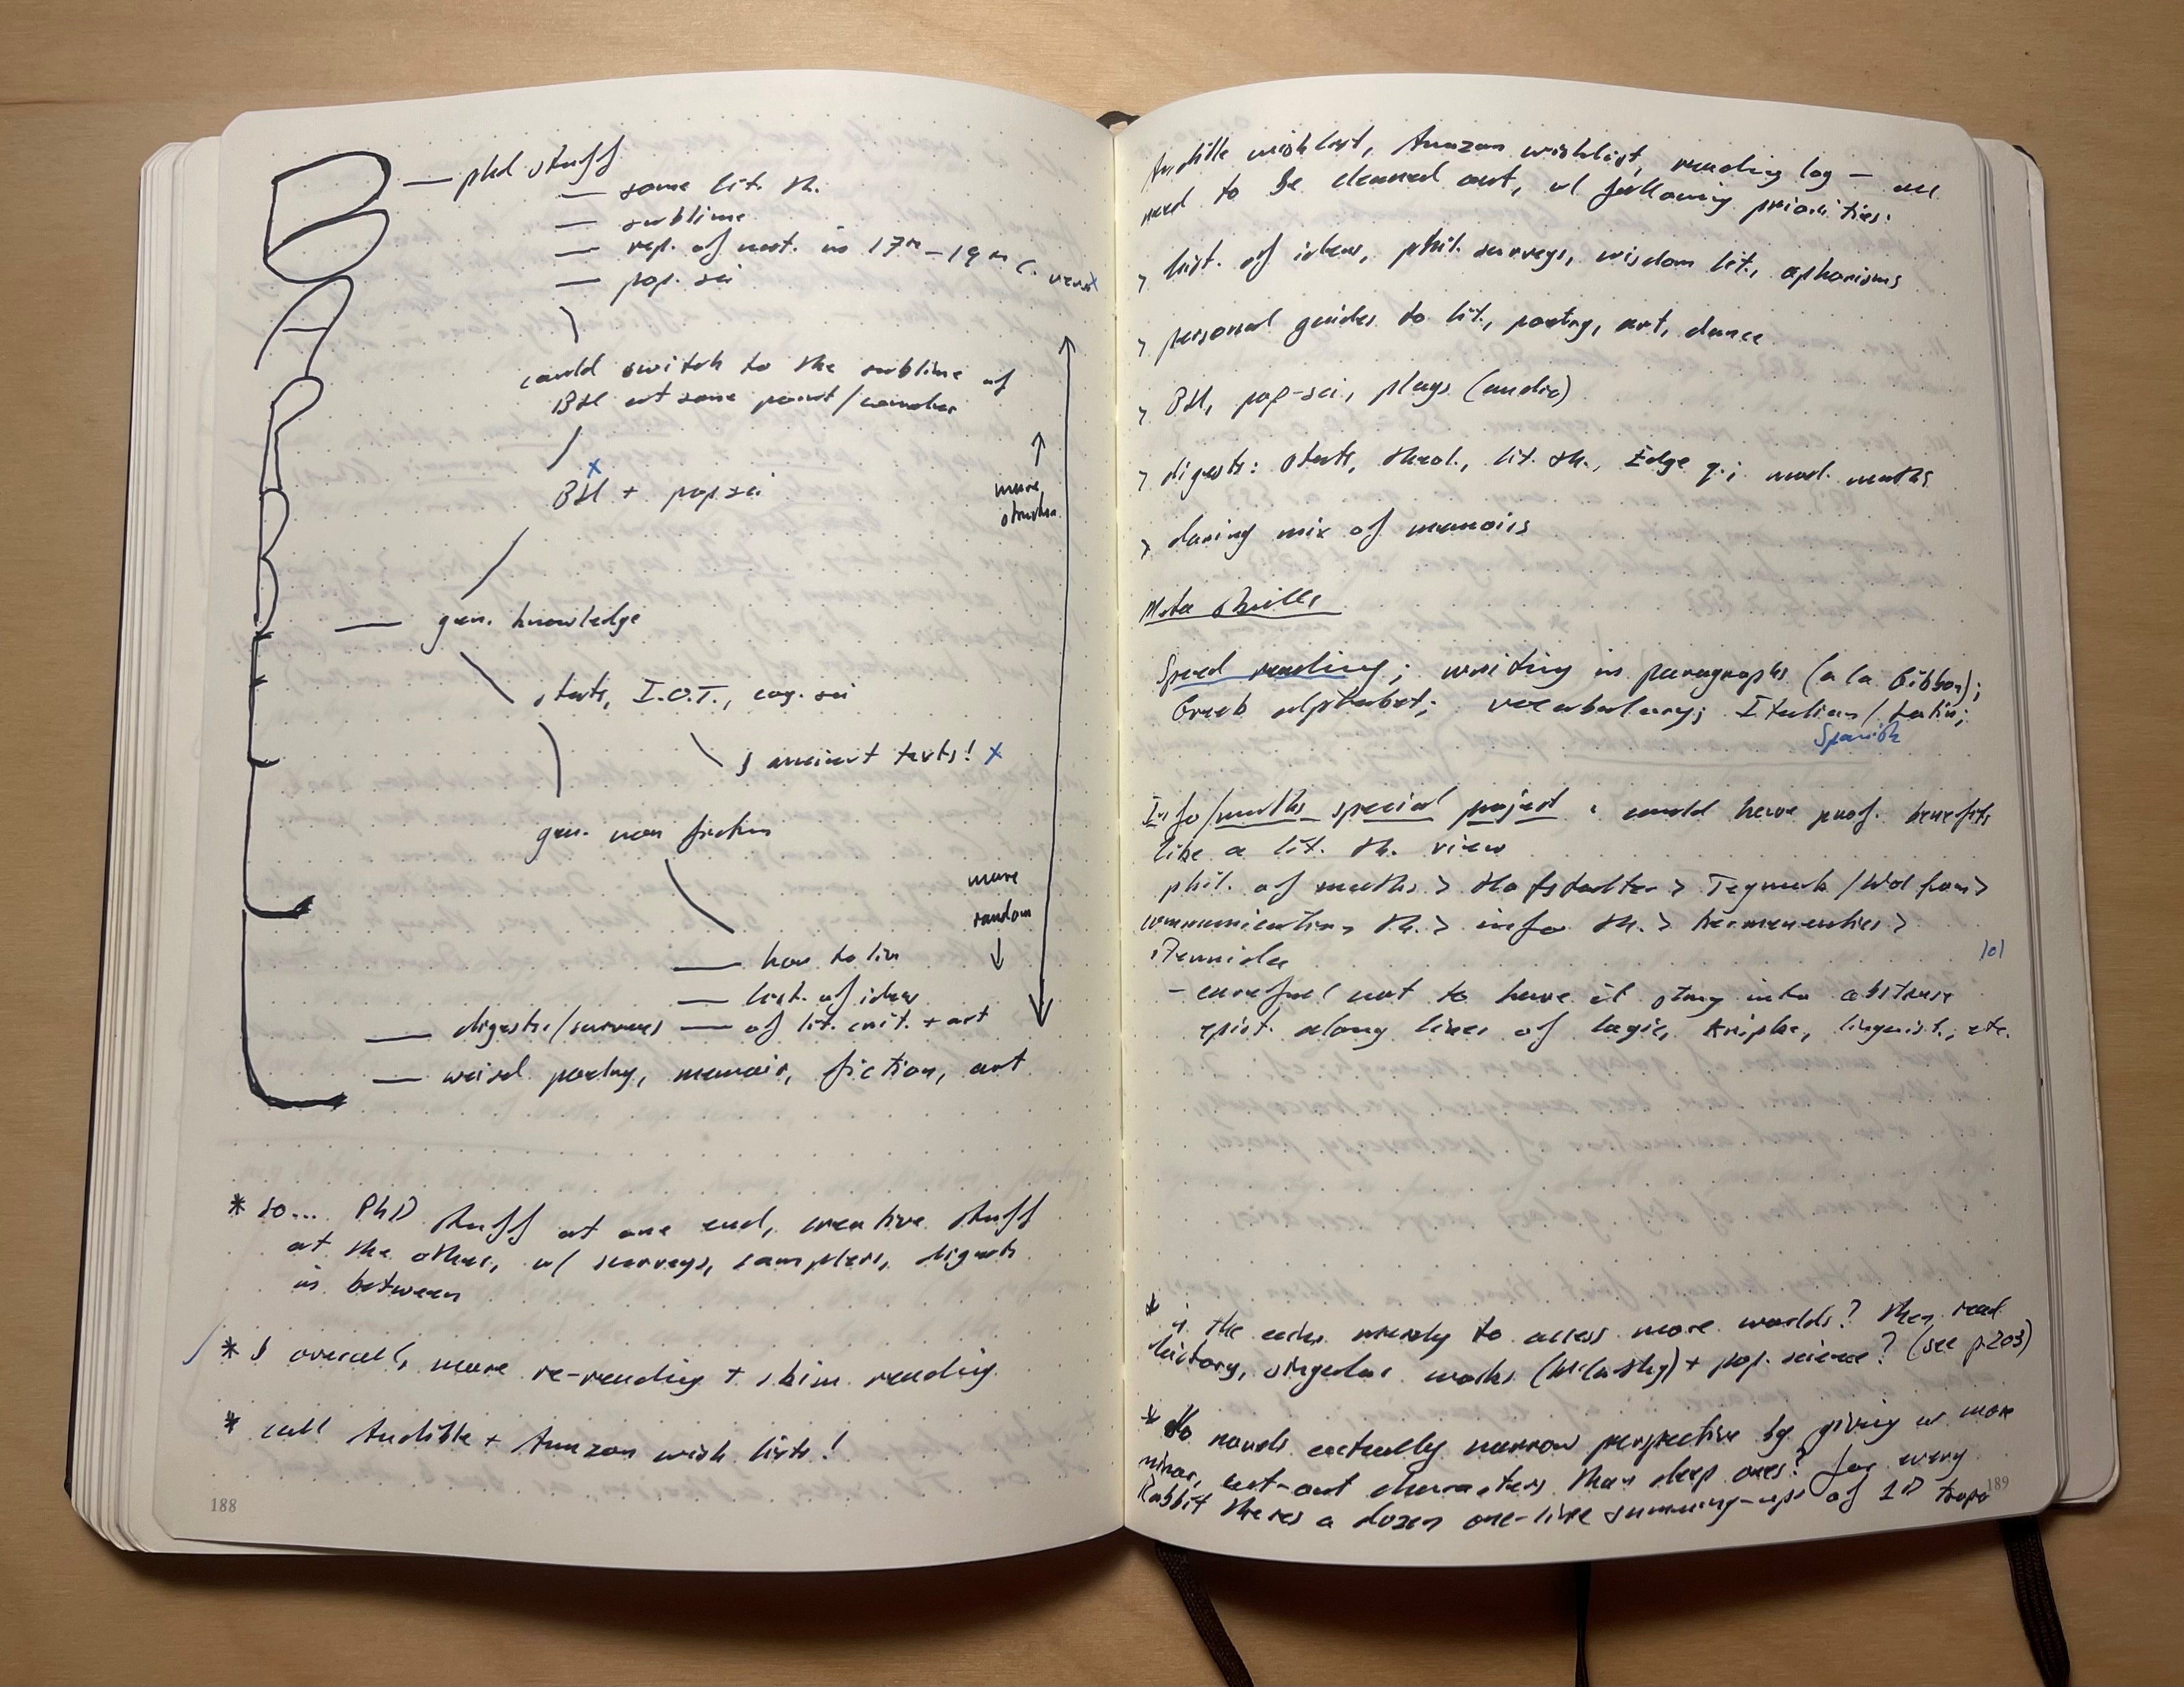 BARBELL
— phd stuff
— some lit. th.
— sublime
— rep. of nat. in 17th–19th C.
— pop. sci
could switch to the sublime of
BH at some point/
BH + pop sci
more
↑
— gen. knowledge
stats, I.O.T., cog. sci
& ancient texts! x
gen. non fiction
more
random
↓
— how to live
— hist. of ideas
— digests/surveys — of lit. crit. + art
— weird poetry, memoir, fiction, art
* so... PhD stuff at one end, creative stuff
at the other, w/ surveys, samplers, digests
in between
* & overall, more re-reading + skim reading
* cull Audible + Amazon wish lists!
188
Audible wishlist, Amazon wishlist, reading log — all
need to be cleaned out, w/ following priorities:
> hist. of ideas, phil. surveys, wisdom lit., aphorisms
> personal guides to lit, poetry, art, dance
> BH, pop-sci, plays (audio)
> digests: stats, theol., lit. th., Edge q.; mod. maths
> daring mix of memoirs
Meta Skills
Speed reading; writing in paragraphs (a la Gibbon);
Greek alphabet; vocabulary; Italian/Latin;
Spanish
Info/maths special project: could have prof. benefits
like a lit. th. view
phil. of maths > Hofstadter > Tegmark/Wolfram >
communications th. > info th. > hermeneutics >
Derrida
– careful not to have it stray into abstruse
epist. along lines of logic, Kripke, linguist., etc.
* is the aim merely to access more worlds? Then read
history, singular works + pop. science? (see p203)
* Do novels actually narrow perspective by giving us more
minor, cut-out characters than deep ones? For every
Rabbit theres a dozen one-line summing-ups of 1D trope
189